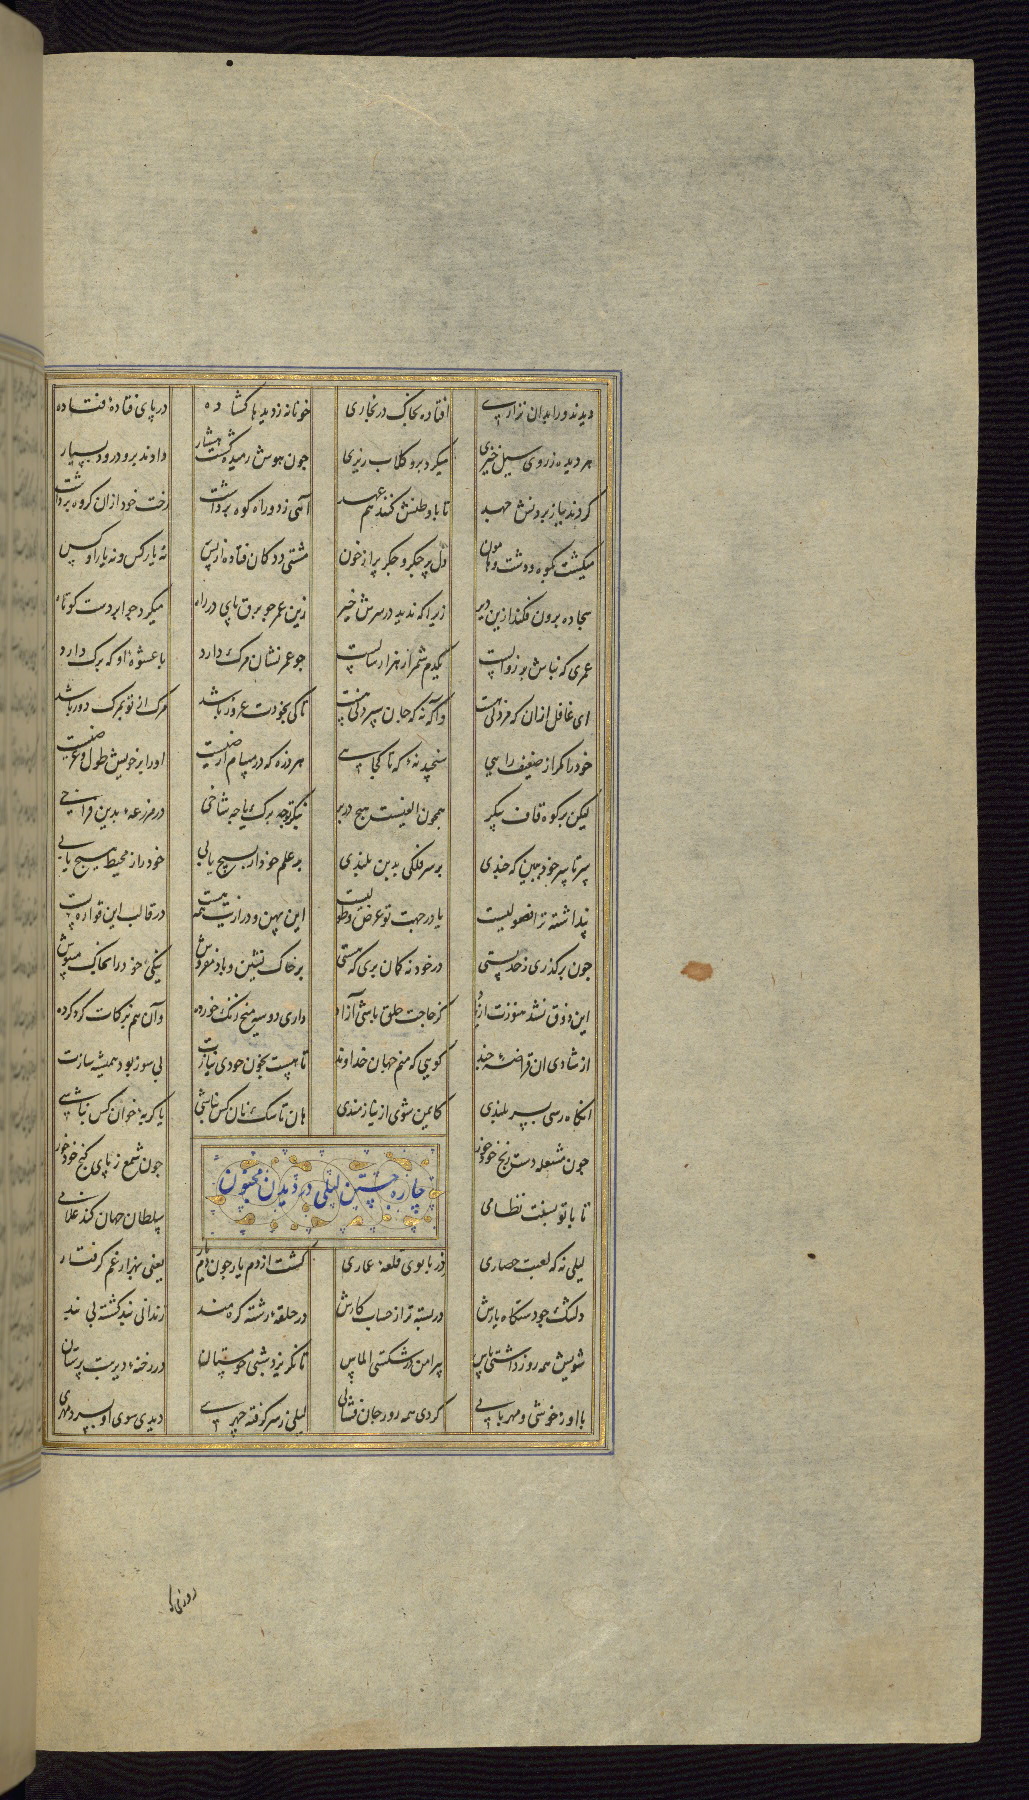 دیدند ورا بدان نزاری افتاده بخاک در بخاری خونابه ز دیدها کشاده در پای فتادهٔ فتاده
هر دیده ز روی سیل خیزی میکرد برو کلاب ریزی چون هوش رمیده کشت هشیار دادند برو درود بسیار
کردند بباز بردنش جهد تا با وطنش کنند هم عهد آهی زد و راه کوه برداشت رخت خود ازان کروه برداشت
میکشت بکوه و دشت و هامون دل پر جکر و جکر پر از خون مشتی ددکان فتاده از پس نه یار کس و نه یار او کس
سجاده برون فکند ازین دیر زیرا که ندید در سرش خیر زین عمر چو برق پای در راه میکرد چو ابر دست کوتاه
عمری که بناش بر زوالست یکدم شمر ار هزار سالست چو عمر نشان مرک دارد با عشوهٔ او که برک دارد
ای غافل ازان که مردنی هست واکه نه که جان سپردنی هست تا کی بخودت غرور باشد مرک از تو بمرک دور باشد
خود را مکر از ضعیف رایی سنجیدنهٔ که تا کجایی هر ذره که در مسام ارضیست او را بر خویش طول و عرضیست
لیکن بر کوه قاف پیکر همچون الفیست هیچ در بر بنکر تو چه برک یا چه شاخی در مزرعهٔ بدین فراخی
سر تا سر خود ببین که چندی بر سر فلکی بدین بلندی بر علم خود ار بسیچ یابی خود را ز محیط هیچ یابی
پنداشتهٔ ترا قبولیست یا در جهت تو عرض و طولیست این پهن و درازیت بهم هست در قالب این قواره پست
چون بر کذری ز حد پستی در خود نه کمان بری که هستی بر خاک نشین و باد مفروش ننکی چو خود را بخاک میپوش
این ذوق نشد هنوزت از یاد کز حاجت خلق باشی آزاد داری دو سه سیخ زنک خورده وآن هم بزکات کرد کرده
از شادی آن قراضهٔ چند کویی که منم جهان خداوند تا هست بچون خودی نیازت بی سوز بود همیشه سازت
آنکاه رسی بسر بلندی کایمن شوی از نیازمندی هان تا سک نان کس نباشی یا کربهٔ خوان کس نباشی
چون مشعله دست رنج خود خور چون شمع ز پای کنج خود خور
چاره جستن لیلی در دیدن مجنون
تا با تو بسنت نظامی سلطان جهان کند غلامی
لیلی نه که لعبت حصاری دز بانوی قلعهٔ عماری کشت از دم یار چون دم یار یعنی بهزار غم کرفتار
دلتنک چو دستکاه یارش در بسته تر از حساب کارش در حلقهٔ رشته کره مند زندانی بند کشته بی بند
شویش همه روز داشتی پاس پیرامن در شکستی الماس تا نکریزد شبی چو مستان در رخنهٔ دیر بت پرستان
با او ز خوشی و مهربانی کردی همه روز جان فشانی لیلی ز سر کرفته چهری دیدی سوی او بسرد مهری
روزی که